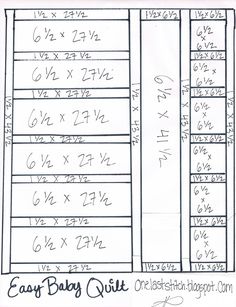 1½ x 27½ 1½ x 6½ 1½ x 6½
6½ x 27½ 6½ x 6½
1½ x 27½ 1½ x 6½
6½ x 27½ 6½ x 6½
1½ x 27½ 1½ x 6½
1½ x 43½ 1½ x 43½ 6½ x 41½ 1½ x 43½ 1½ x 43½
6½ x 27½ 6½ x 6½
1½ x 27½ 1½ x 6½
6½ x 27½ 6½ x 6½
1½ x 27½ 1½ x 6½
6½ x 27½ 6½ x 6½
1½ x 27½ 1½ x 6½
6½ x 27½ 6½ x 6½
1½ x 27½ 1½ x 6½ 1½ x 6½
Easy Baby Quilt onelaststitch.blogspot.com